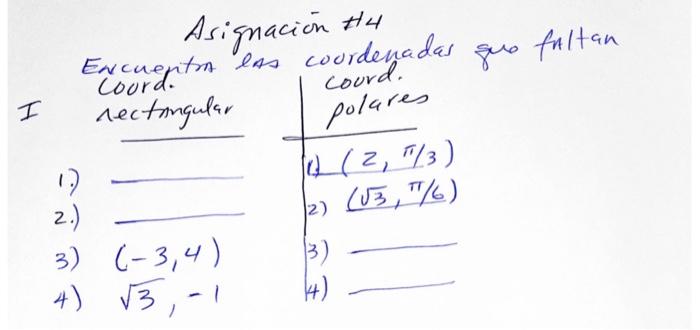 Asignación #4
Encuentra las coordenadas que faltan
I
Coord. rectangular
coord. polares
1.) ________ 1) (2, π/3)
2.) ________ 2) (√3, π/6)
3) (-3,4) 3) ________
4) √3, -1 4) ________